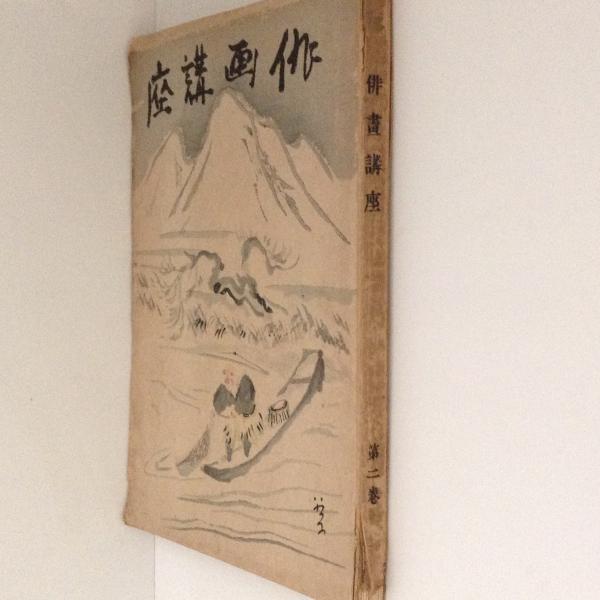 俳画講座
俳畫講座
第二卷